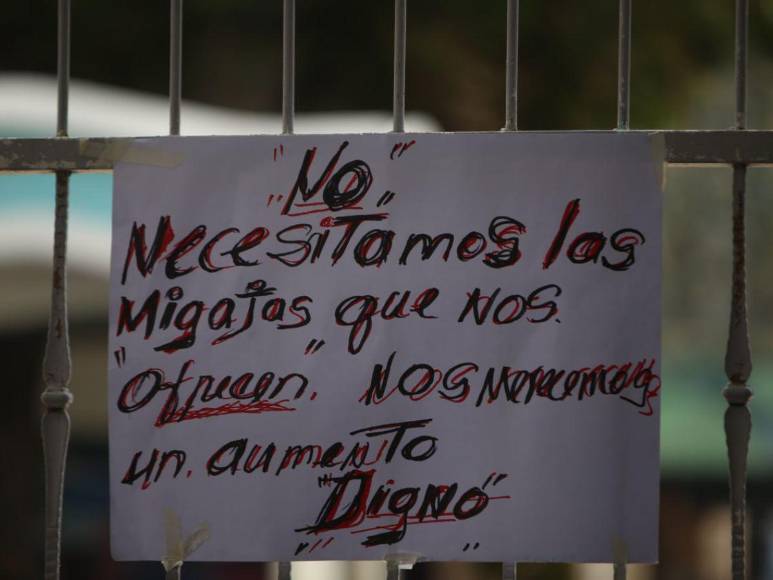 "NO"
Necesitamos las
Migajas que NOS.
"Ofrecen". NOS Merecemos
un. aumento
"Digno"